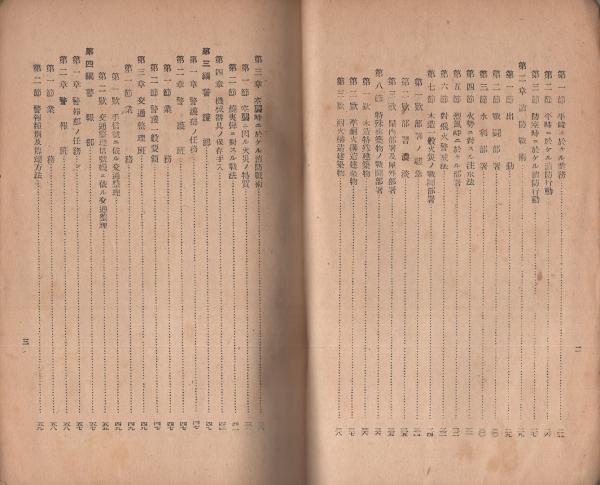 第一節 平時ニ於ケル業務
第二節 平時ニ於ケル消防行動
第三節 防空時ニ於ケル消防行動
第二章 消防戦術
第一節 出動
第二節 戦闘部署
第三節 水利部署
第四節 火勢ニ対スル注水法
第五節 烈風時ニ於ケル部署
第六節 対飛火警戒法
第七節 木造一般火災ノ戦闘部署
第一款 部署ノ選業
第二款 部署ノ濃淡
第三款 屋内部署及屋外部署
第八節 特殊建築物ノ戦闘部署
第一款 木造特殊建築物
第二款 準耐火構造建築物
第三款 耐火構造建築物
二
第三章 空襲時ニ於ケル消防戦術
第一節 空襲ニ因ル火災ノ特質
第二節 焼夷弾ニ対スル戦法
第四章 機械器具ノ保存手入
第三編 警護部
第一章 警護部ノ任務
第二章 警護班
第一節 業務
第二節 警護一般要領
第三章 交通整理班
第一節 業務
第一款 手信号ニ依ル交通整理
第二款 交通整理信号機ニ依ル交通整理
第四編 警報部
第一章 警報部ノ任務
第二章 警報班
第一節 業務
第二節 警報種別及伝達方法
三